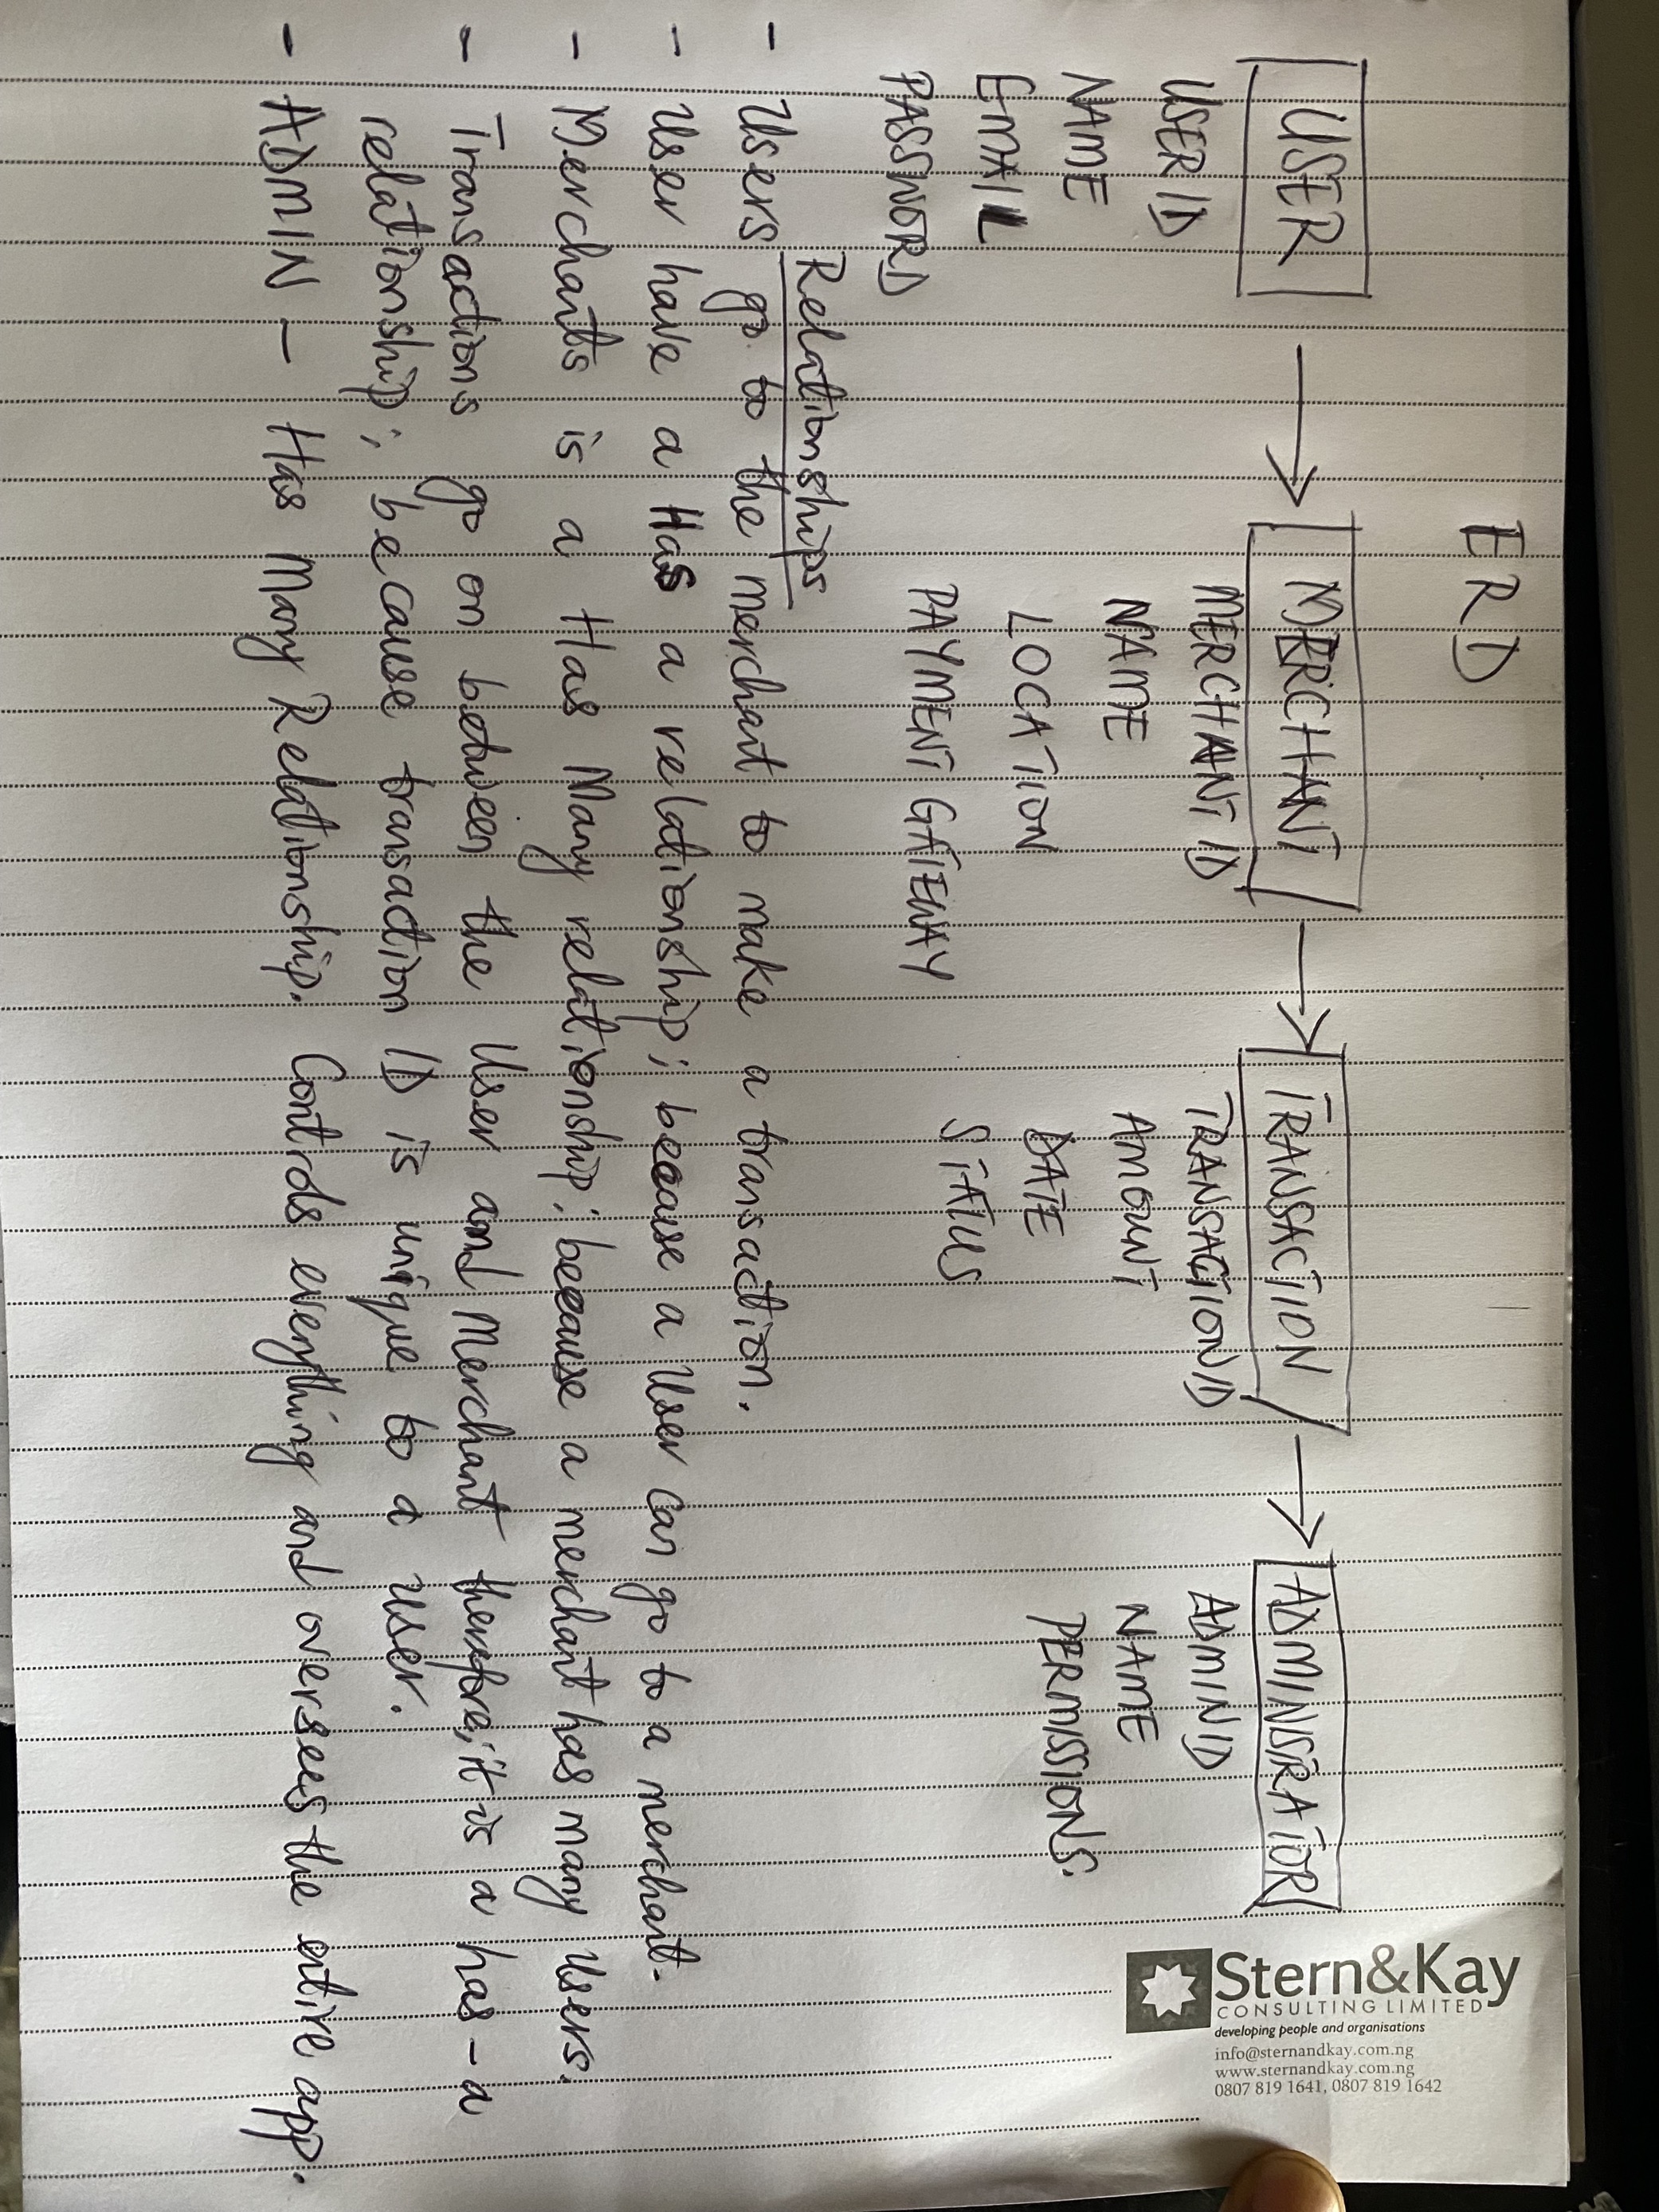 ERD
USER → MERCHANT → TRANSACTION → ADMINISTRATOR
USER ID MERCHANT ID TRANSACTION ID ADMIN ID
NAME NAME AMOUNT NAME
EMAIL LOCATION DATE PERMISSIONS.
PASSWORD PAYMENT GATEWAY STATUS
Relationships
- Users go to the merchant to make a transaction.
- User have a Has a relationship; because a User can go to a merchant.
- Merchants is a Has Many relationship; because a merchant has many Users.
- Transactions go on between the User and Merchant therefore, it is a has-a
relationship; because transaction ID is unique to a User.
- ADMIN - Has Many Relationship. Controls everything and oversees the entire app.
Stern&Kay
CONSULTING LIMITED
developing people and organisations
info@sternandkay.com.ng
www.sternandkay.com.ng
0807 819 1641, 0807 819 1642